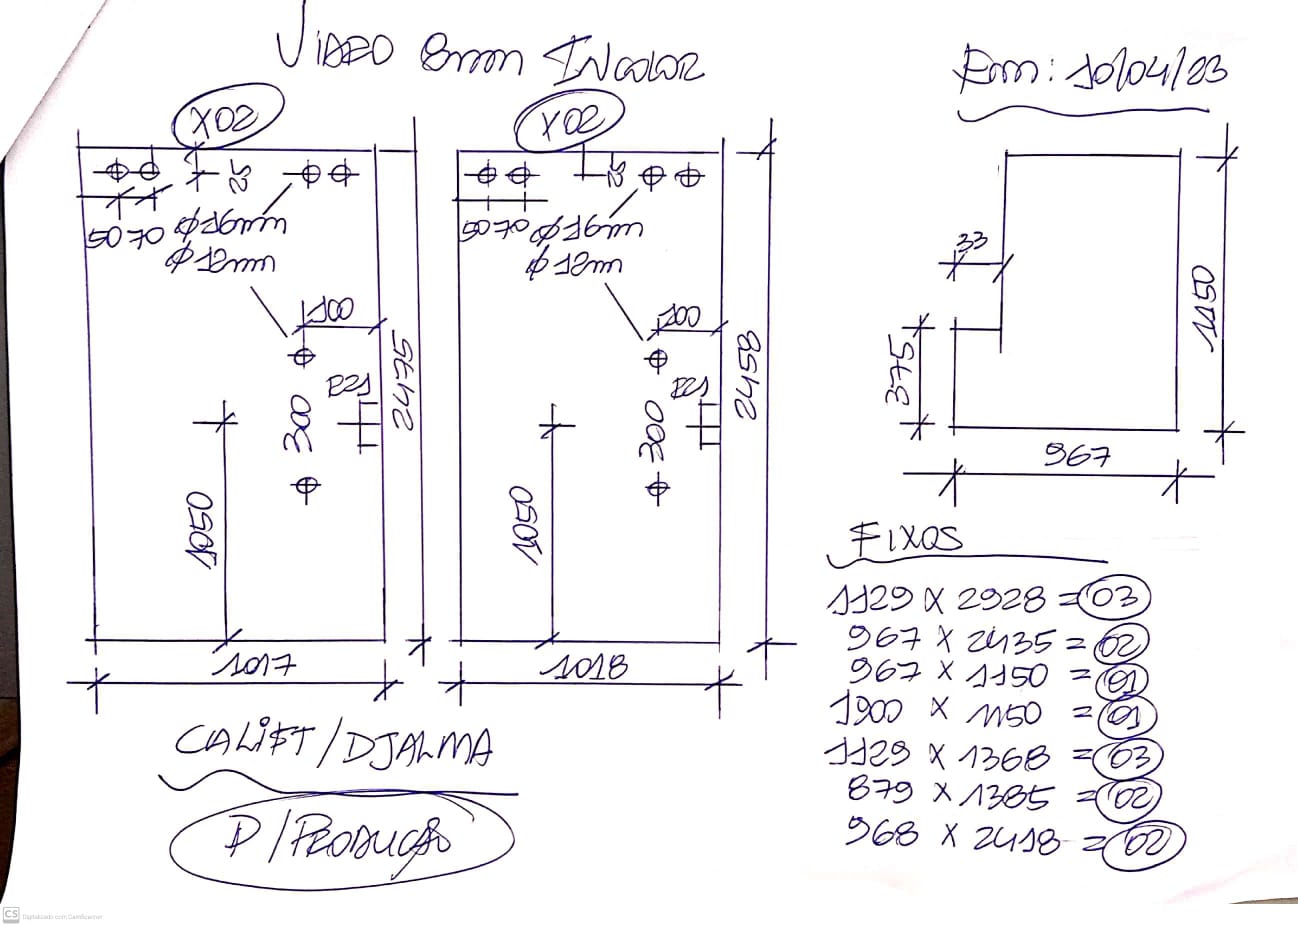 VIDRO 8mm INCOLOR
Em: 10/04/23
X02
X02
52
50 70
Ø16mm
Ø12mm
100
300
1050
2475
1017
52
50 70
Ø16m
Ø12m
100
300
1050
2458
1018
33
375
1150
967
CALIFT/DJALMA
P/PRODUÇÃO
FIXOS
1129 X 2928 = 03
967 X 2435 = 02
967 X 1150 = 01
1900 X 1150 = 01
1129 X 1368 = 03
879 X 1385 = 02
968 X 2418 = 02
CS Digitalizado com CamScanner